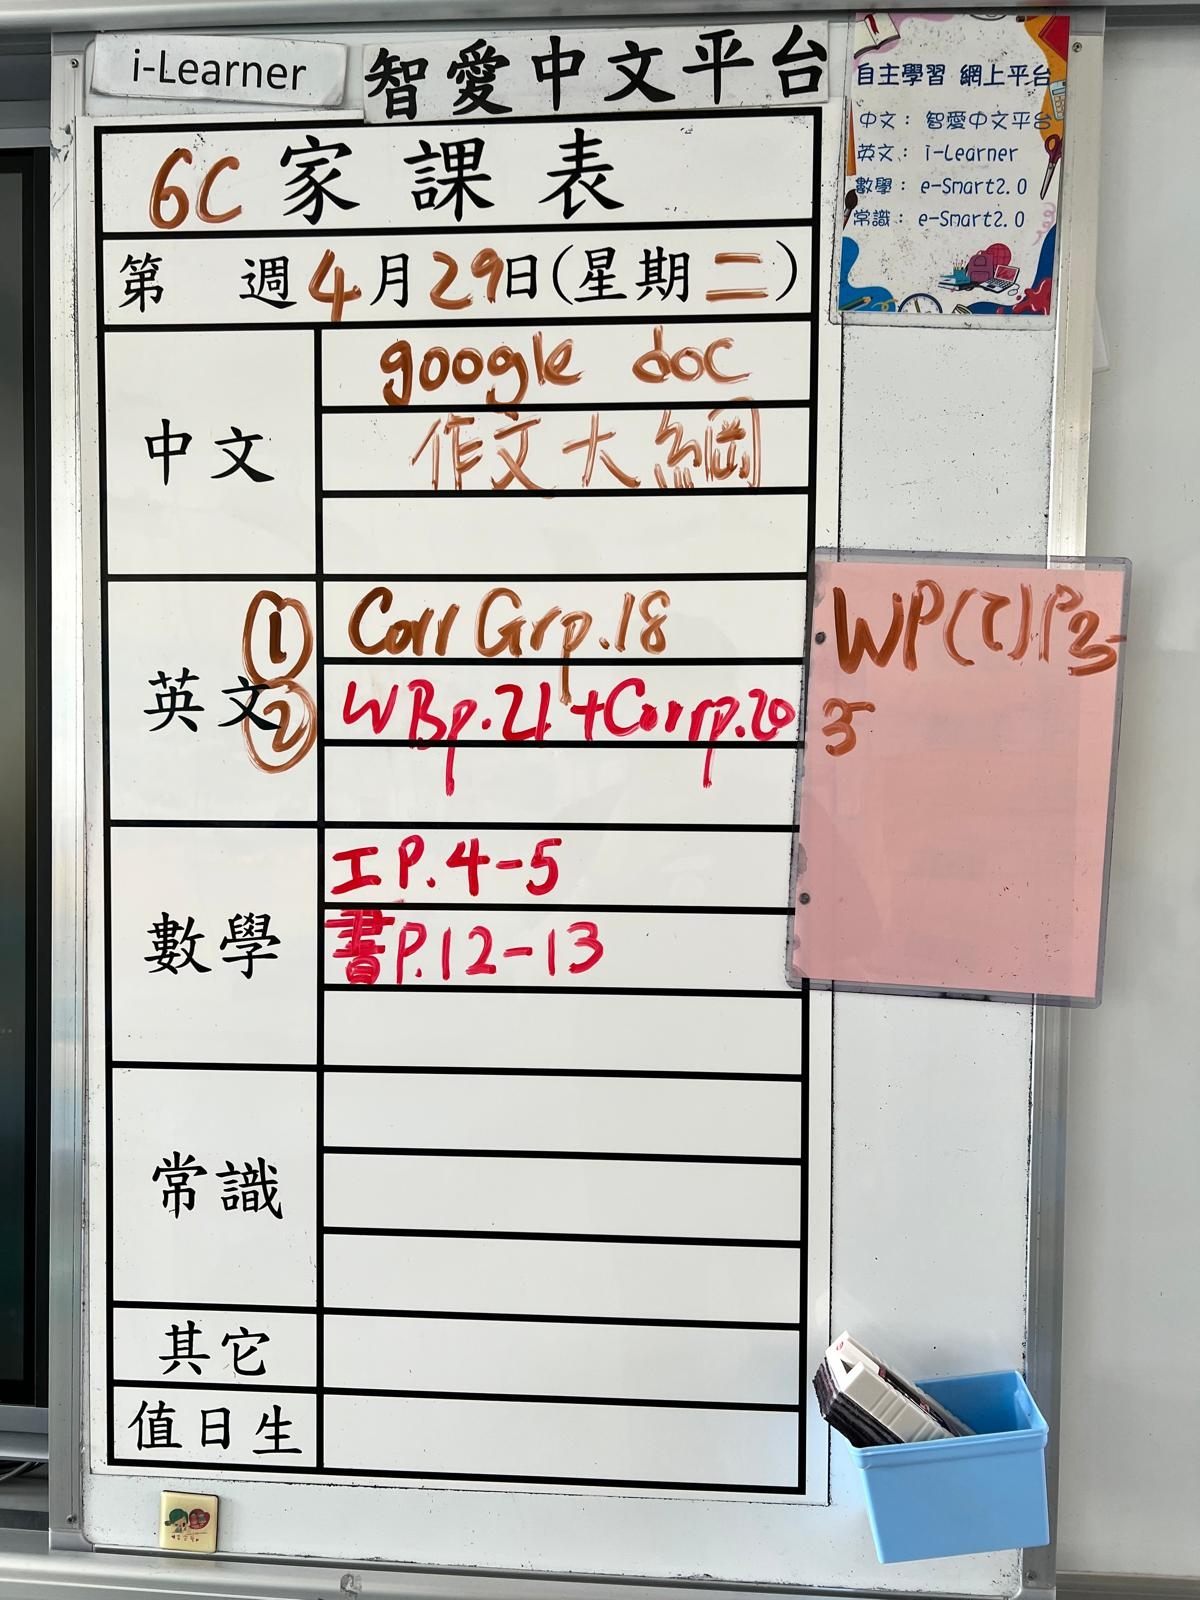 i-Learner
智愛中文平台
自主學習 網上平台
中文： 智愛中文平台
英文： i-Learner
數學： e-Smart2.0
常識： e-Smart2.0
6C 家課表
第 週 4月29日(星期二)
中文
google doc
作文大綱
英文
① Corr Grp.18
② WBp.21+Corrp.20
WP(T)P3-
35
數學
工P.4-5
書P.12-13
常識
其它
值日生